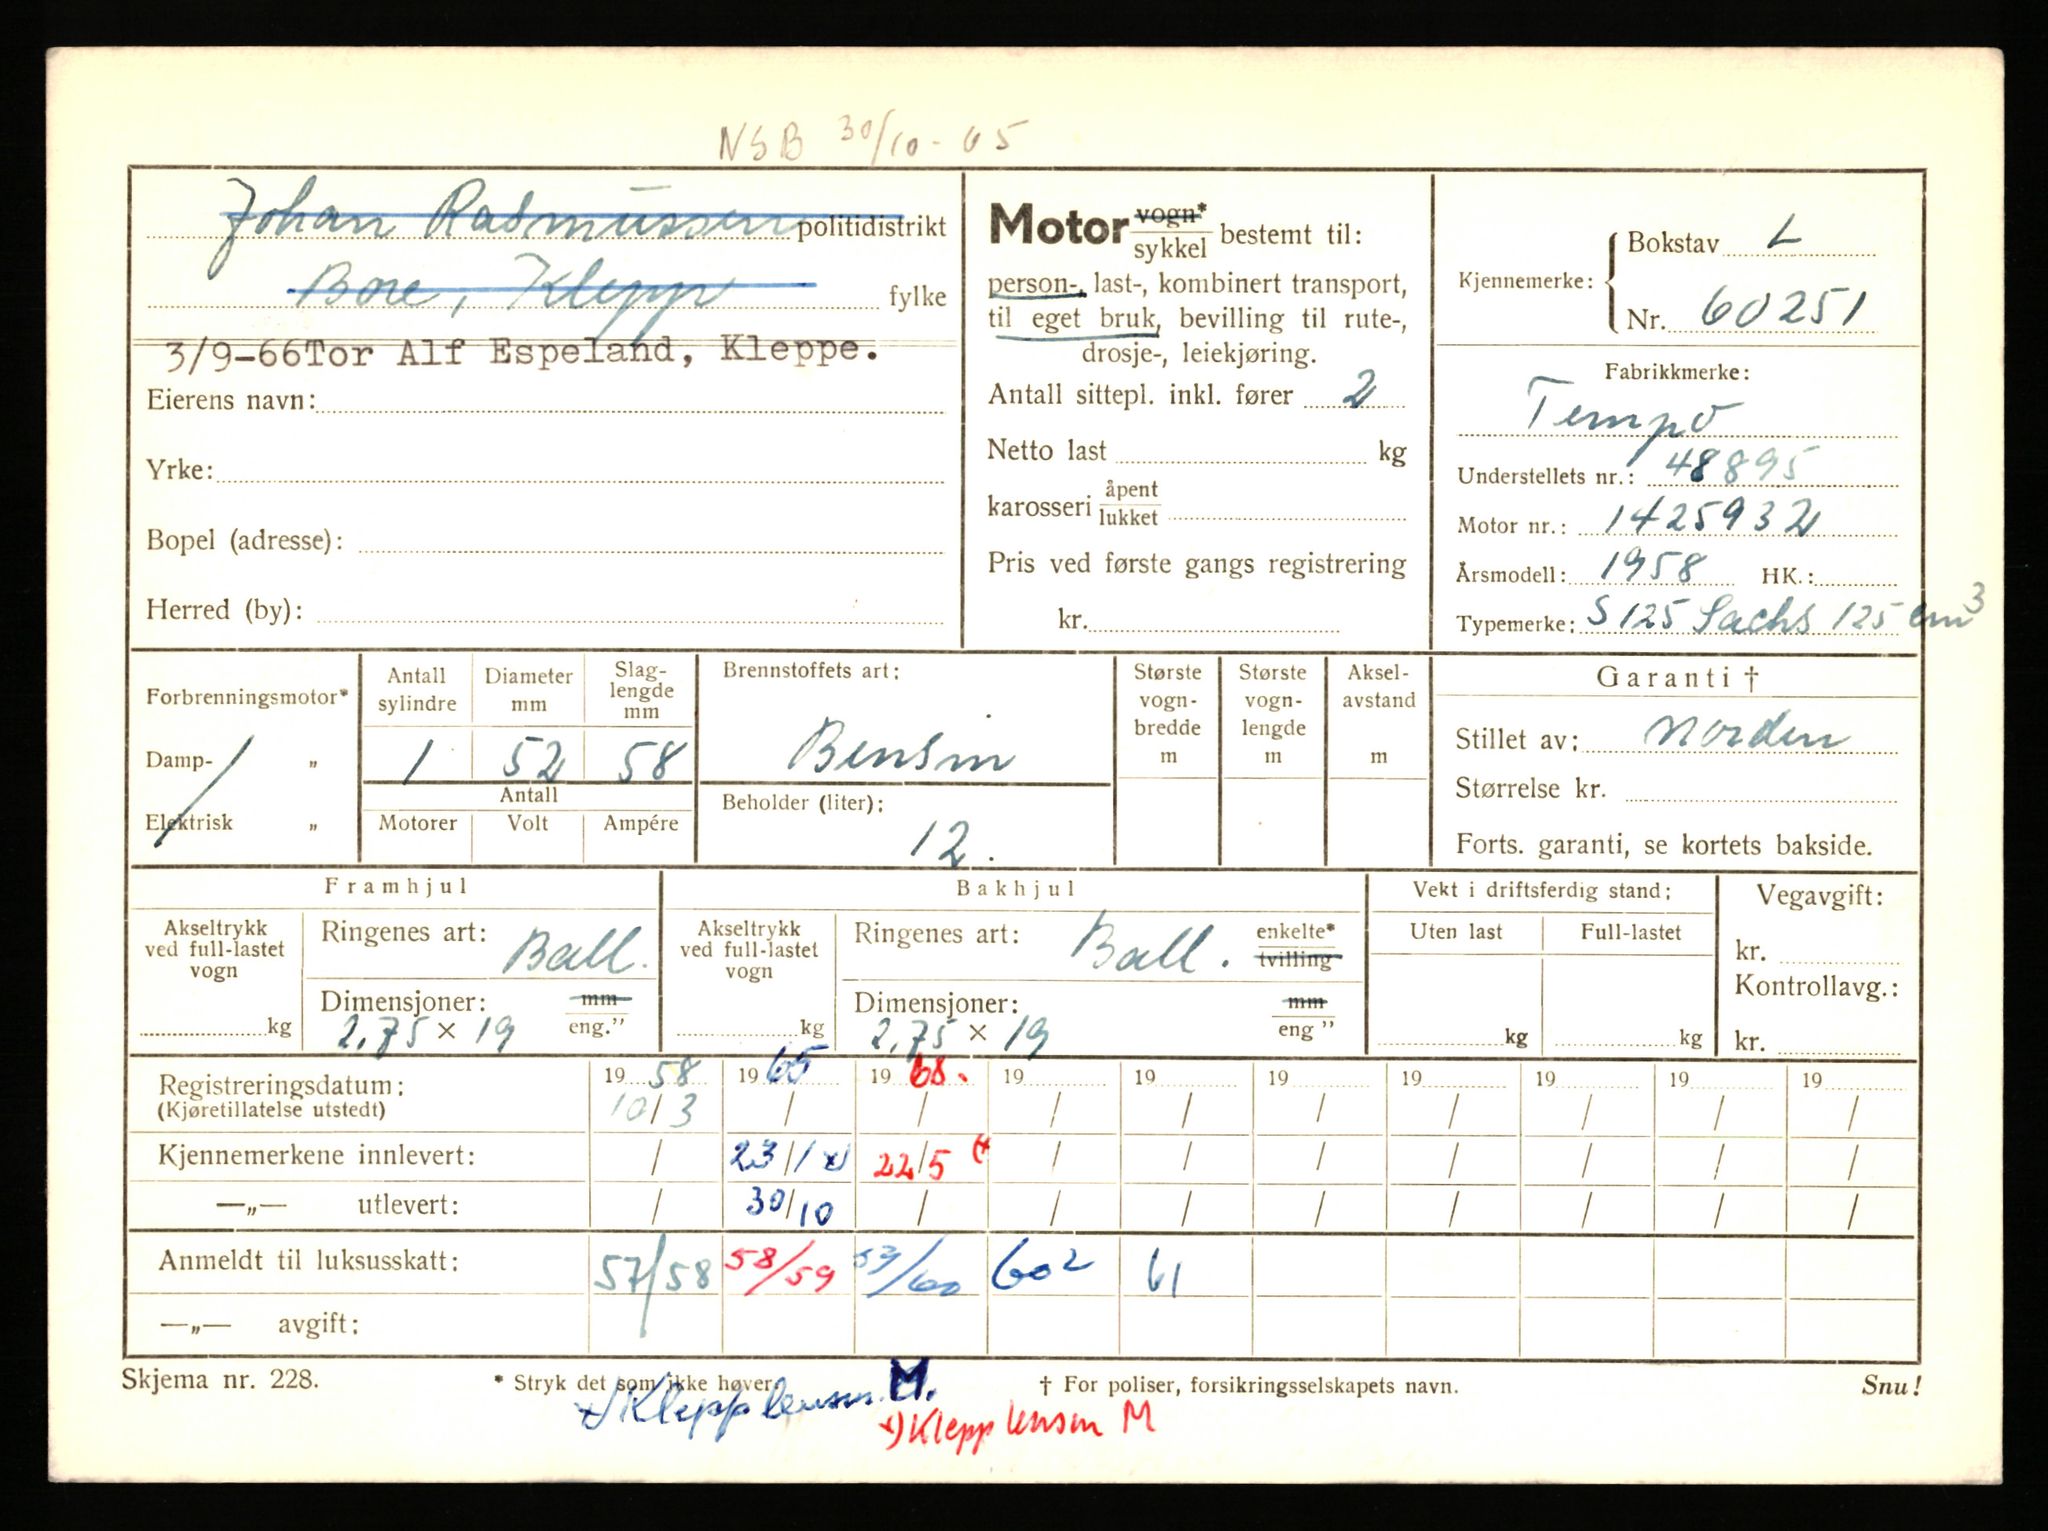 NSB 30/10-65
Johan Rasmussen politidistrikt
Bore, Klepp fylke
3/9-66 Tor Alf Espeland, Kleppe.
Eierens navn:
Yrke:
Bopel (adresse):
Herred (by):
Motor vogn* sykkel bestemt til:
person-, last-, kombinert transport,
til eget bruk, bevilling til rute-,
drosje-, leiekjøring.
Antall sittepl. inkl. fører 2
Netto last kg
karosseri åpent lukket
Pris ved første gangs registrering
kr.
Kjennemerke: Bokstav L
Nr. 60251
Fabrikkmerke:
Tempo
Understellets nr.: 48895
Motor nr.: 1425932
Årsmodell: 1958 HK.:
Typemerke: S 125 Sachs 125 cm3
Forbrenningsmotor*
Damp- „
Elektrisk „
Antall sylindre Diameter mm Slag-lengde mm
1 52 58
Antall
Motorer Volt Ampére
Brennstoffets art:
Bensin
Beholder (liter):
12.
Største vogn-bredde m
Største vogn-lengde m
Aksel-avstand m
Garanti †
Stillet av: Norden
Størrelse kr.
Forts. garanti, se kortets bakside.
Framhjul
Akseltrykk ved full-lastet vogn kg
Ringenes art: Ball.
Dimensjoner: mm eng."
2,75 × 19
Bakhjul
Akseltrykk ved full-lastet vogn kg
Ringenes art: Ball. enkelte* tvilling
Dimensjoner: mm eng "
2,75 × 19
Vekt i driftsferdig stand:
Uten last Full-lastet
kg kg
Vegavgift:
kr.
Kontrollavg.:
kr.
Registreringsdatum: 19 58 19 65 19 68. 19 19 19 19 19 19 19
(Kjøretillatelse utstedt) 10/3 / / / / / / / / /
Kjennemerkene innlevert: / 23/1 x) 22/5 / / / / / / /
—„— utlevert: / 30/10 / / / / / / / /
Anmeldt til luksusskatt: 57/58 58/59 59/60 602 61
—„— avgift:
Skjema nr. 228. * Stryk det som ikke høver. † For poliser, forsikringsselskapets navn. Snu!
x) Klepp lensm. M.
x) Klepp lensm M